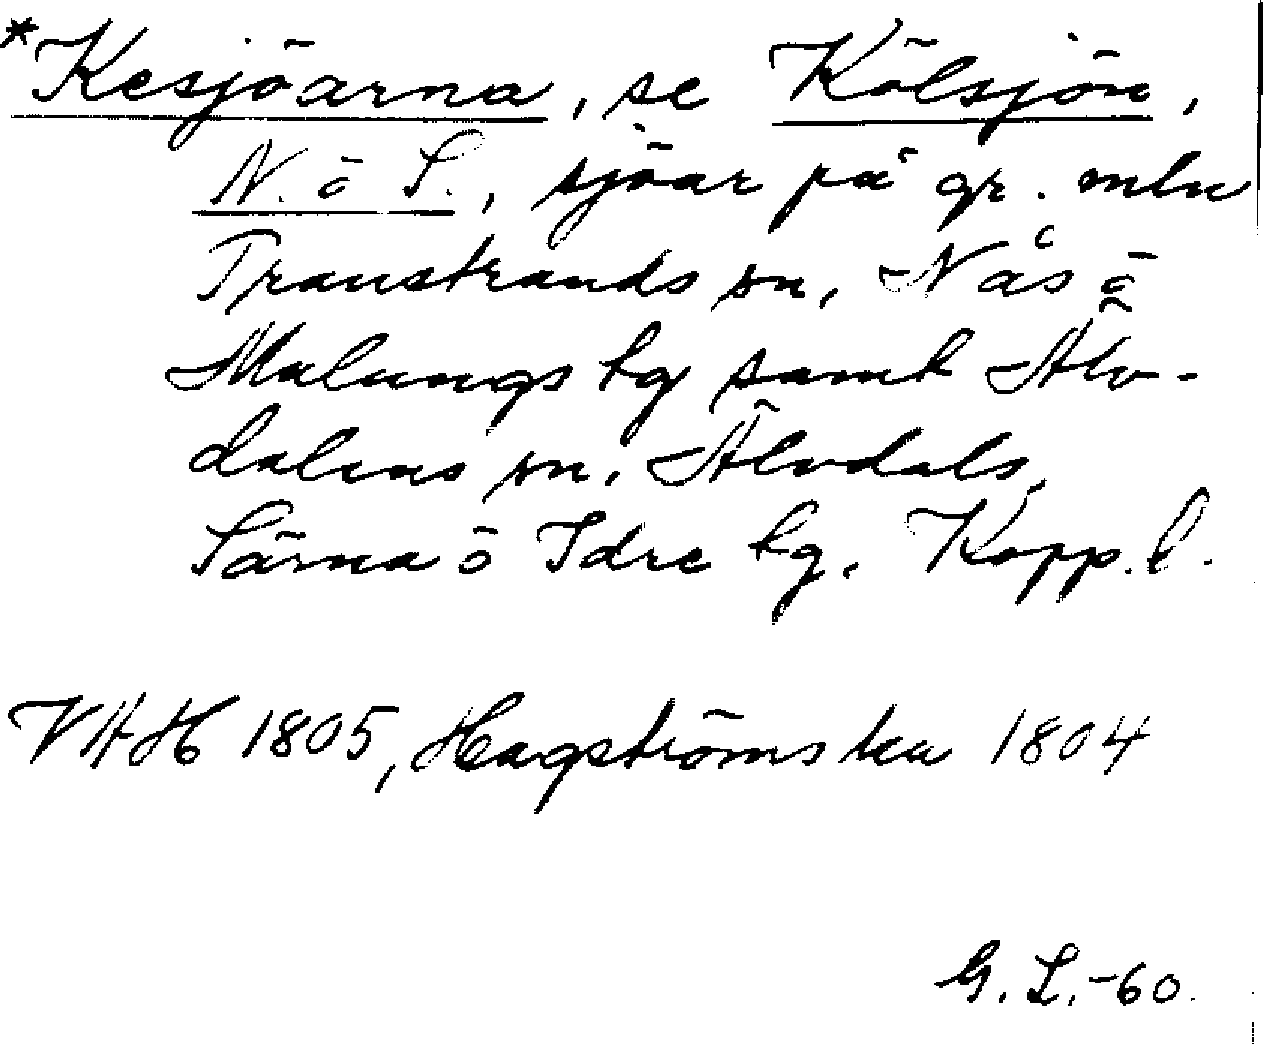 *Kesjöarna, se Kölsjön,
N. ö S., sjöar på gr. mln
Transtrands sn, Nås ö
Malungs tg samt Älv-
dalens sn. Älvdals,
Särna ö Idre tg. Kopp. l.
VAH 1805, Hagströms ka 1804
G. L. -60.